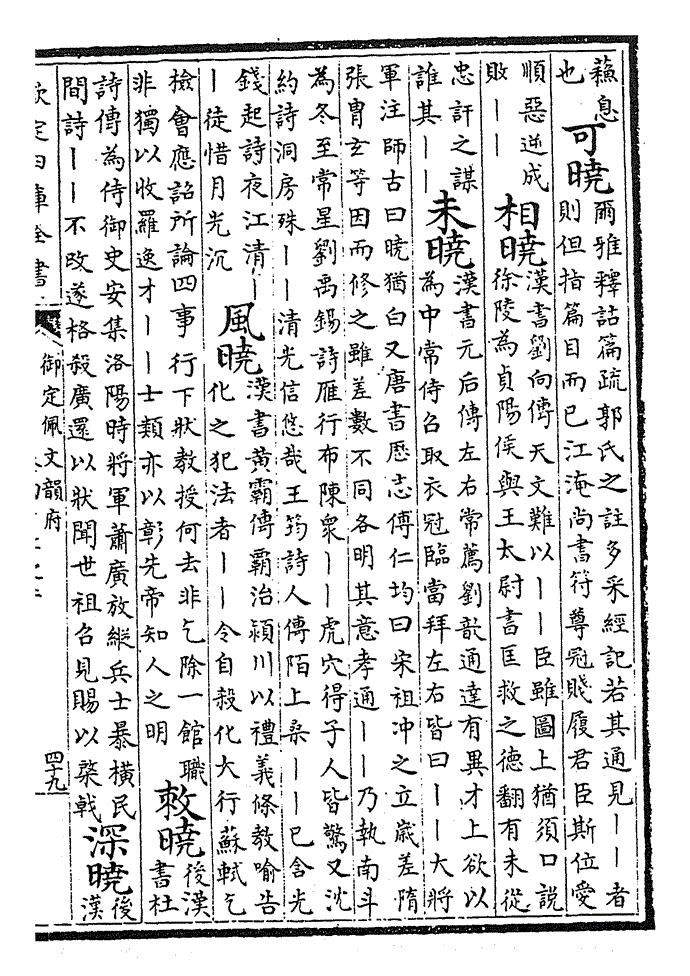 蘓息
也
可曉
爾雅釋詁篇疏郭氏之註多采經記若其通見——者
則但指篇目而已江淹尚書符尊冠賤履君臣斯位愛
順惡逆成
敗——
相曉
漢書劉向傳天文難以——臣雖圖上猶須口說
徐陵為貞陽侯與王太尉書匡救之德翻有未從
忠訐之謀
誰其——
未曉
漢書元后傳左右常薦劉歆通達有異才上欲以
為中常侍召取衣冠臨當拜左右皆曰——大將
軍注師古曰曉猶白又唐書歴志傅仁均曰宋祖冲之立歲差隋
張胄玄等因而修之雖差數不同各明其意孝通——乃執南斗
為冬至常星劉禹錫詩雁行布陳衆——虎穴得子人皆驚又沈
約詩洞房殊——清光信悠哉王筠詩人傳陌上桑——已含光
錢起詩夜江清—
—徒惜月光沉
風曉
漢書黄霸傳霸治潁川以禮義條教喻告
化之犯法者——令自殺化大行蘇軾乞
檢會應詔所論四事行下狀教授何去非乞除一館職
非獨以收羅逸才——士類亦以彰先帝知人之明
敕曉
後漢
書杜
詩傳為侍御史安集洛陽時將軍蕭廣放縱兵士暴横民
間詩——不改遂格殺廣還以狀聞世祖召見賜以棨戟
深曉
後
漢
欽定四庫全書
御定佩文韻府
四十九